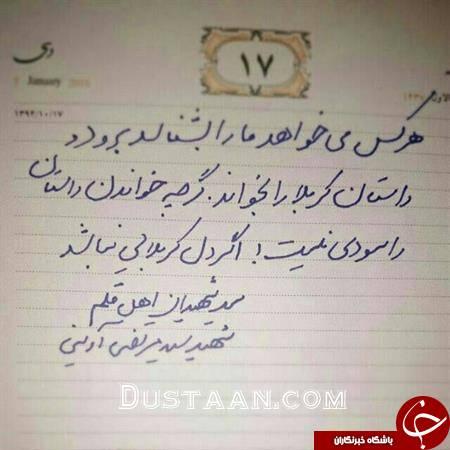 دی
۱۷
7 January
۱۳۹۴/۱۰/۱۷
هرکس می خواهد ما را بشناسد برود و
داستان کربلا را بخواند. گرچه خواندن داستان
را سودی نیست؛ اگر دل کربلایی نباشد
سید شهیدان اهل قلم
شهید سید مرتضی آوینی
DUSTAAN.COM
باشگاه خبرنگاران